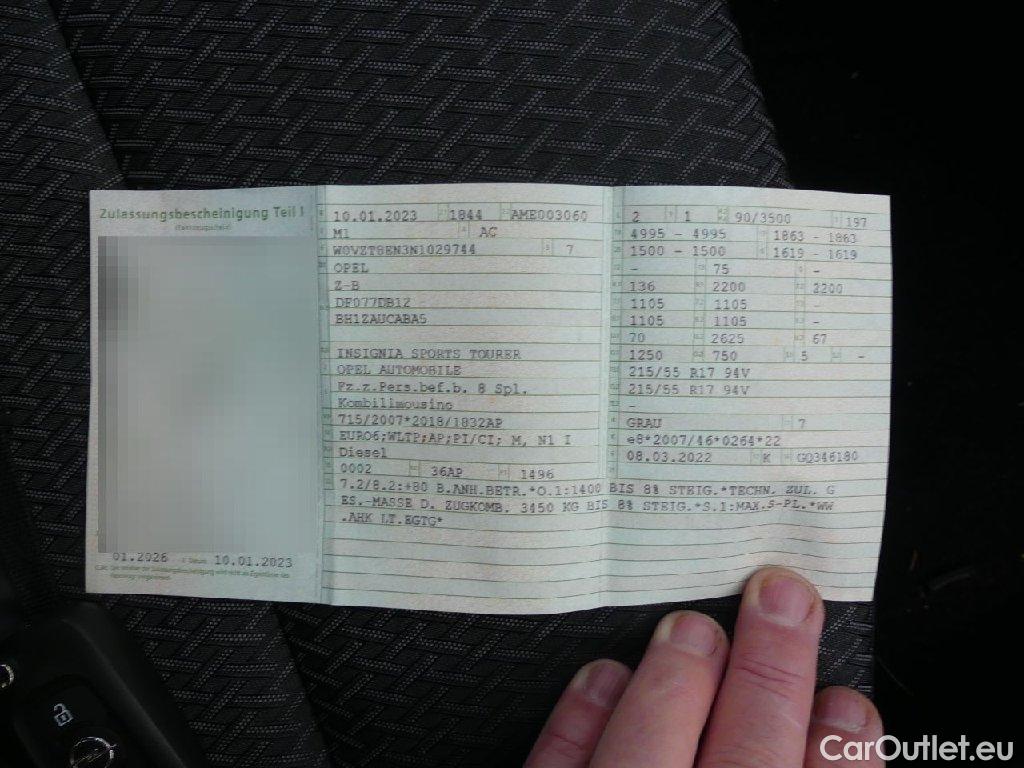 Zulassungsbescheinigung Teil I
(Fahrzeugschein)
01.2026 10.01.2023
10.01.2023 1844 AME003060
M1 AC
W0VZT8EN3N1029744 7
OPEL
Z-B
DF077DB12
BH1ZAUCABA5
INSIGNIA SPORTS TOURER
OPEL AUTOMOBILE
Fz.z.Pers.bef.b. 8 Spl.
Kombilimousine
715/2007*2018/1832AP
EURO6;WLTP;AP;PI/CI; M, N1 I
Diesel
0002 36AP 1496
2 1 90/3500 197
4995 - 4995 1863 - 1863
1500 - 1500 1619 - 1619
- 75 -
136 2200 2200
1105 1105 -
1105 1105 -
70 2625 67
1250 750 5 -
215/55 R17 94V
215/55 R17 94V
-
GRAU 7
e8*2007/46*0264*22
08.03.2022 K GQ346180
7.2/8.2:+80 B.ANH.BETR.*O.1:1400 BIS 8% STEIG.*TECHN. ZUL. G
ES.-MASSE D. ZUGKOMB. 3450 KG BIS 8% STEIG.*S.1:MAX.S-PL.*WW
.AHK LT.EGTG*
CarOutlet.eu